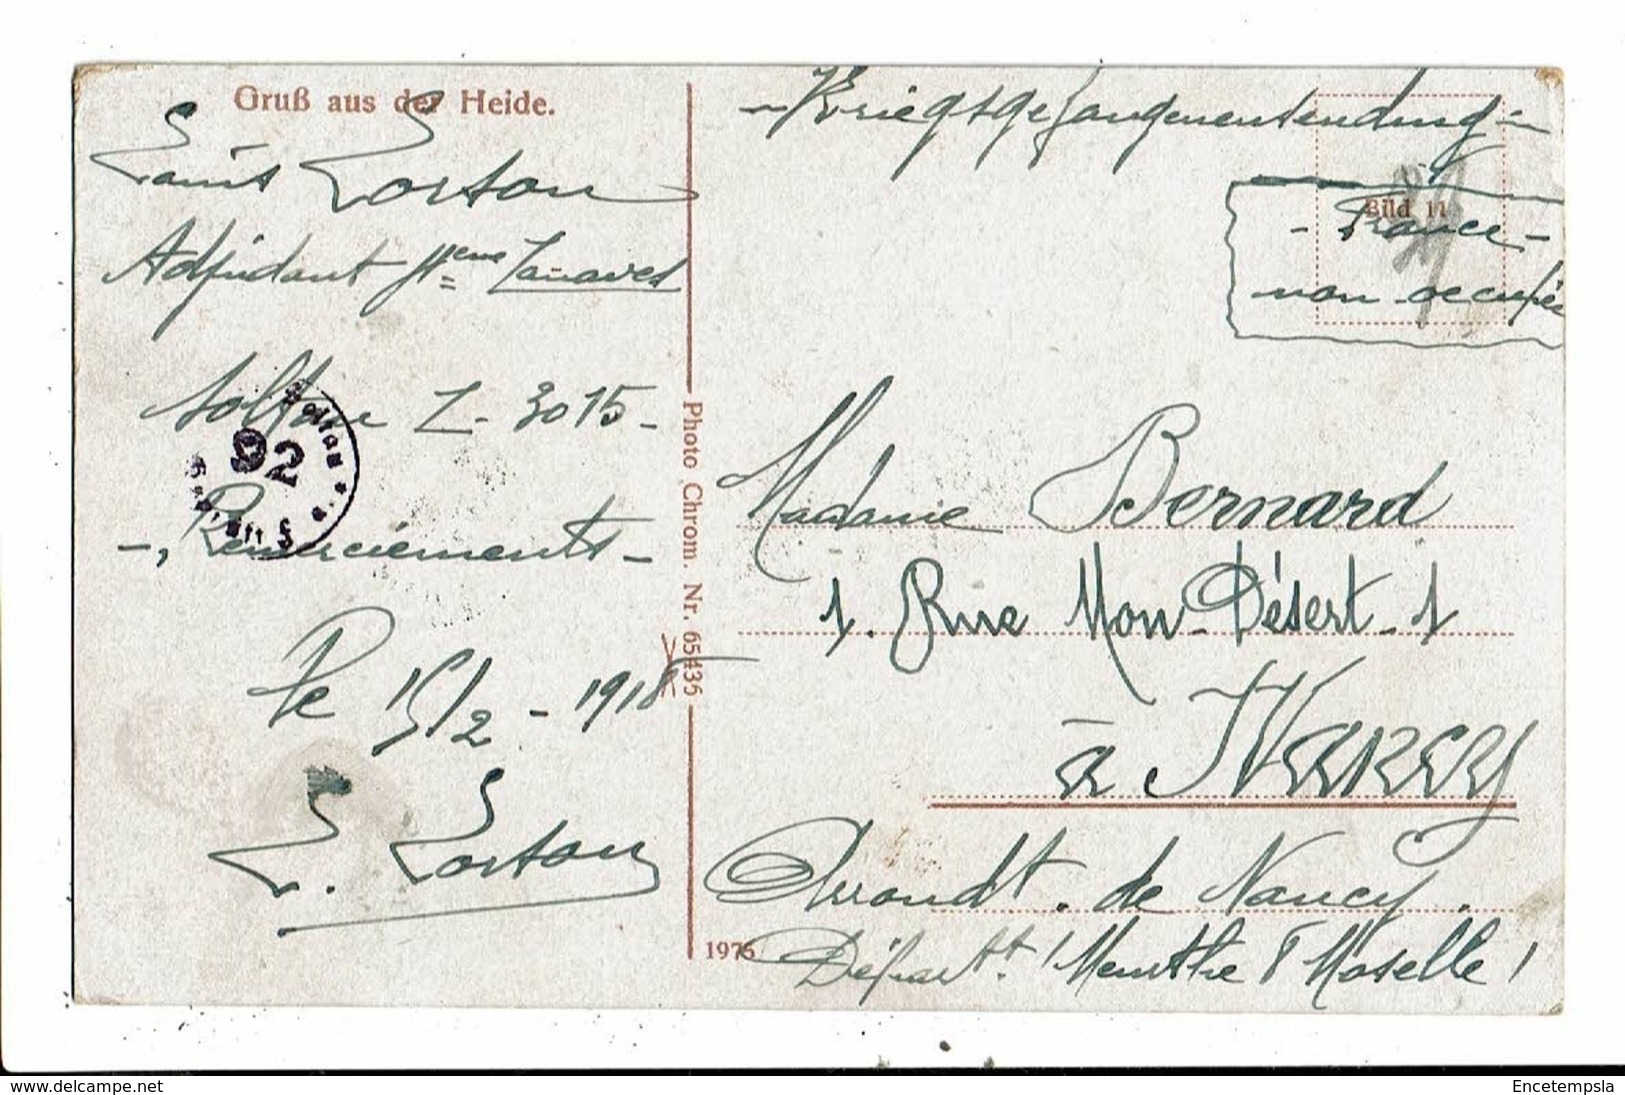 Gruß aus der Heide.
Louis Lorton
Adjudant 4ème Zouaves
Soltau Z - 3015 -
-, Remerciements -
le 15/2 - 1918
L. Lorton
92
Photo Chrom. Nr. 65435
1975
- Kriegsgefangenensendung -
Bild 11
- France -
non occupée
Madame Bernard
1. Rue Mon-Désert - 1
à Nancy
Arrondt. de Nancy.
Départt. (Meurthe & Moselle)
www.delcampe.net
Encetempsla